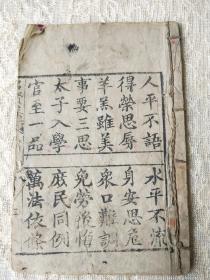 人平不語 水平不流
得榮思辱 身安思危
羊羔雖美 衆口難調
事要三思 免勞後悔
太子入學 庶民同例
官至一品 萬法依條